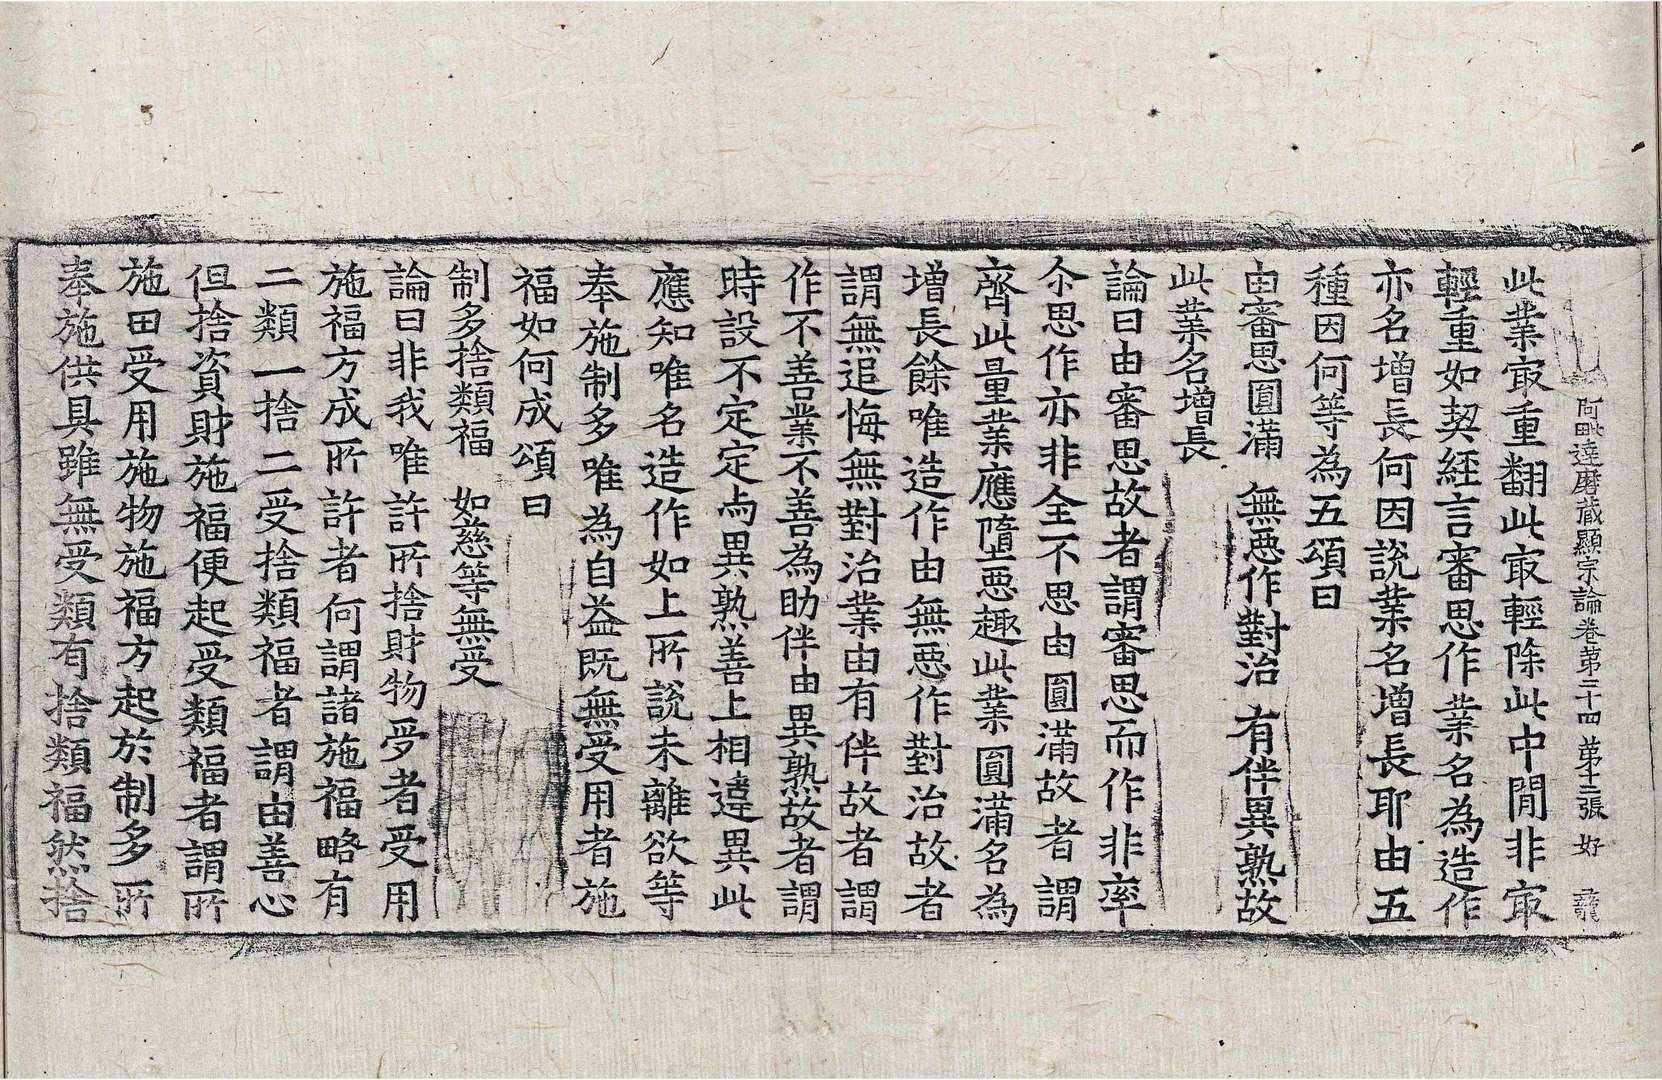 阿毗達磨藏顯宗論卷第二十四 第十二張 好
此業㝡重翻此㝡輕除此中閒非㝡
輕重如契經言審思作業名為造作
亦名增長何因說業名增長耶由五
種因何等為五頌曰
由審思圓滿 無惡作對治 有伴異熟故
此業名增長
論曰由審思故者謂審思而作非率
尒思作亦非全不思由圓滿故者謂
齊此量業應墮惡趣此業圓滿名為
增長餘唯造作由無惡作對治故者
謂無追悔無對治業由有伴故者謂
作不善業不善為助伴由異熟故者謂
時設不定定与異熟善上相違異此
應知唯名造作如上所說未離欲等
奉施制多唯為自益既無受用者施
福如何成頌曰
制多捨類福 如慈等無受
論曰非我唯許所捨財物受者受用
施福方成所許者何謂諸施福略有
二類一捨二受捨類福者謂由善心
但捨資財施福便起受類福者謂所
施田受用施物施福方起於制多所
奉施供具雖無受類有捨類福然捨